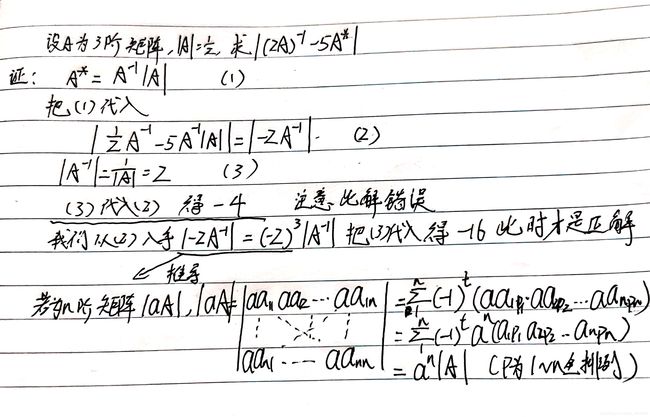 设A为3阶矩阵,|A|=½,求|(2A)⁻¹-5A*|
证: A*=A⁻¹|A| (1)
把(1)代入
|½A⁻¹-5A⁻¹|A||=|-2A⁻¹|. (2)
|A⁻¹|=1/|A|=2 (3)
(3)代入(2) 得-4 注意:此解错误
我们从(2)入手|-2A⁻¹|=(-2)³|A⁻¹| 把(3)代入得-16 此时才是正解
推导
若为n阶矩阵|aA|,|aA|=|aa₁₁ aa₁₂ ⋯ aa₁ₙ ⋮ aaₙ₁ ⋯ aaₙₙ|=Σ(-1)ᵗ(aa₁p₁·aa₂p₂⋯aaₙpₙ)
=Σ(-1)ᵗaⁿ(a₁p₁a₂p₂⋯aₙpₙ)
=aⁿ|A| (P为1~n全排列)